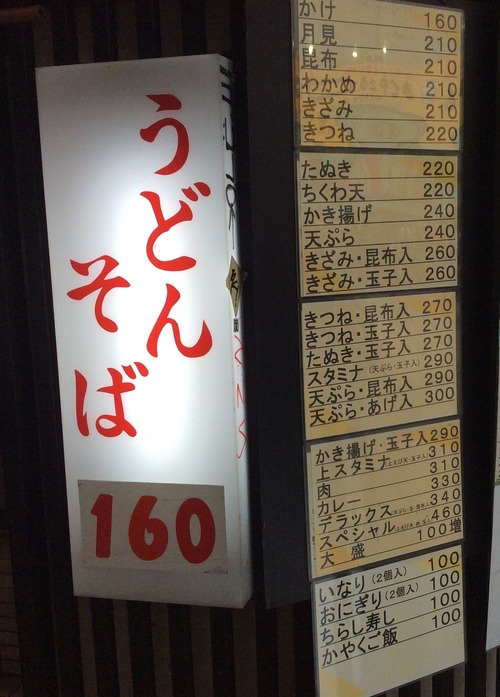 うどん
そば
160
かけ 160
月見 210
昆布 210
わかめ 210
きざみ 210
きつね 220
たぬき 220
ちくわ天 220
かき揚げ 240
天ぷら 240
きざみ・昆布入 260
きざみ・玉子入 260
きつね・昆布入 270
きつね・玉子入 270
たぬき・玉子入 270
スタミナ(天ぷら・玉子入) 290
天ぷら・昆布入 290
天ぷら・あげ入 300
かき揚げ・玉子入 290
上スタミナ 310
肉 310
カレー 330
デラックス 340
スペシャル 460
大盛 100増
いなり(2個入) 100
おにぎり(2個入) 100
ちらし寿し 100
かやくご飯 100